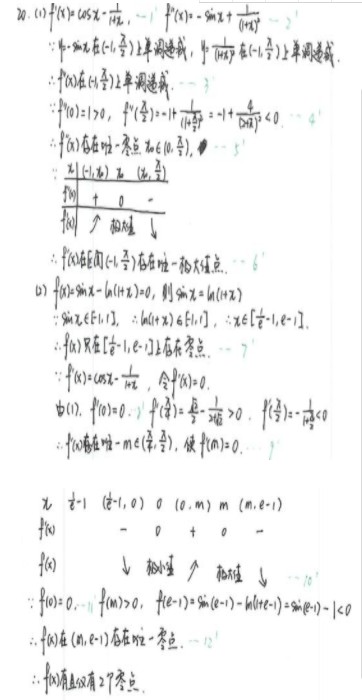 20. (1) f'(x)=cosx-1/(1+x), --1' f''(x)=-sinx+1/(1+x)² --2'
∵y=-sinx在(-1,π/2)上单调递减, y=1/(1+x)²在(-1,π/2)上单调递减
∴f''(x)在(-1,π/2)上单调递减. --3'
∵f''(0)=1>0, f''(π/2)=-1+1/(1+π/2)²=-1+4/(2+π)²<0. --4'
∴f''(x)存在唯一零点x₀∈(0,π/2), --5'
∴
x (-1,x₀) x₀ (x₀,π/2)
f''(x) + 0 -
f'(x) ↗ 极大值 ↓
∴f'(x)在区间(-1,π/2)存在唯一极大值点. --6'
(2) f(x)=sinx-ln(1+x)=0, 则sinx=ln(1+x)
∵sinx∈[-1,1], ∴ln(1+x)∈[-1,1], ∴x∈[1/e-1,e-1].
∴f(x)只在[1/e-1,e-1]上存在零点. --7'
∵f'(x)=cosx-1/(1+x), 令f'(x)=0.
由(1), f'(0)=0. f'(π/4)=√2/2- >0. f'(π/2)=-1/(1+π/2)<0
∴f'(x)存在唯一m∈(π/4,π/2), 使f'(m)=0. --9'
x 1/e-1 (1/e-1,0) 0 (0,m) m (m,e-1)
f'(x) - 0 + 0 -
f(x) ↓ 极小值 ↗ 极大值 ↓ --10'
∵f(0)=0, --11' f(m)>0, f(e-1)=sin(e-1)-ln(1+e-1)=sin(e-1)-1<0
∴f(x)在(m,e-1)存在唯一零点 --12'
∴f(x)有且仅有2个零点.